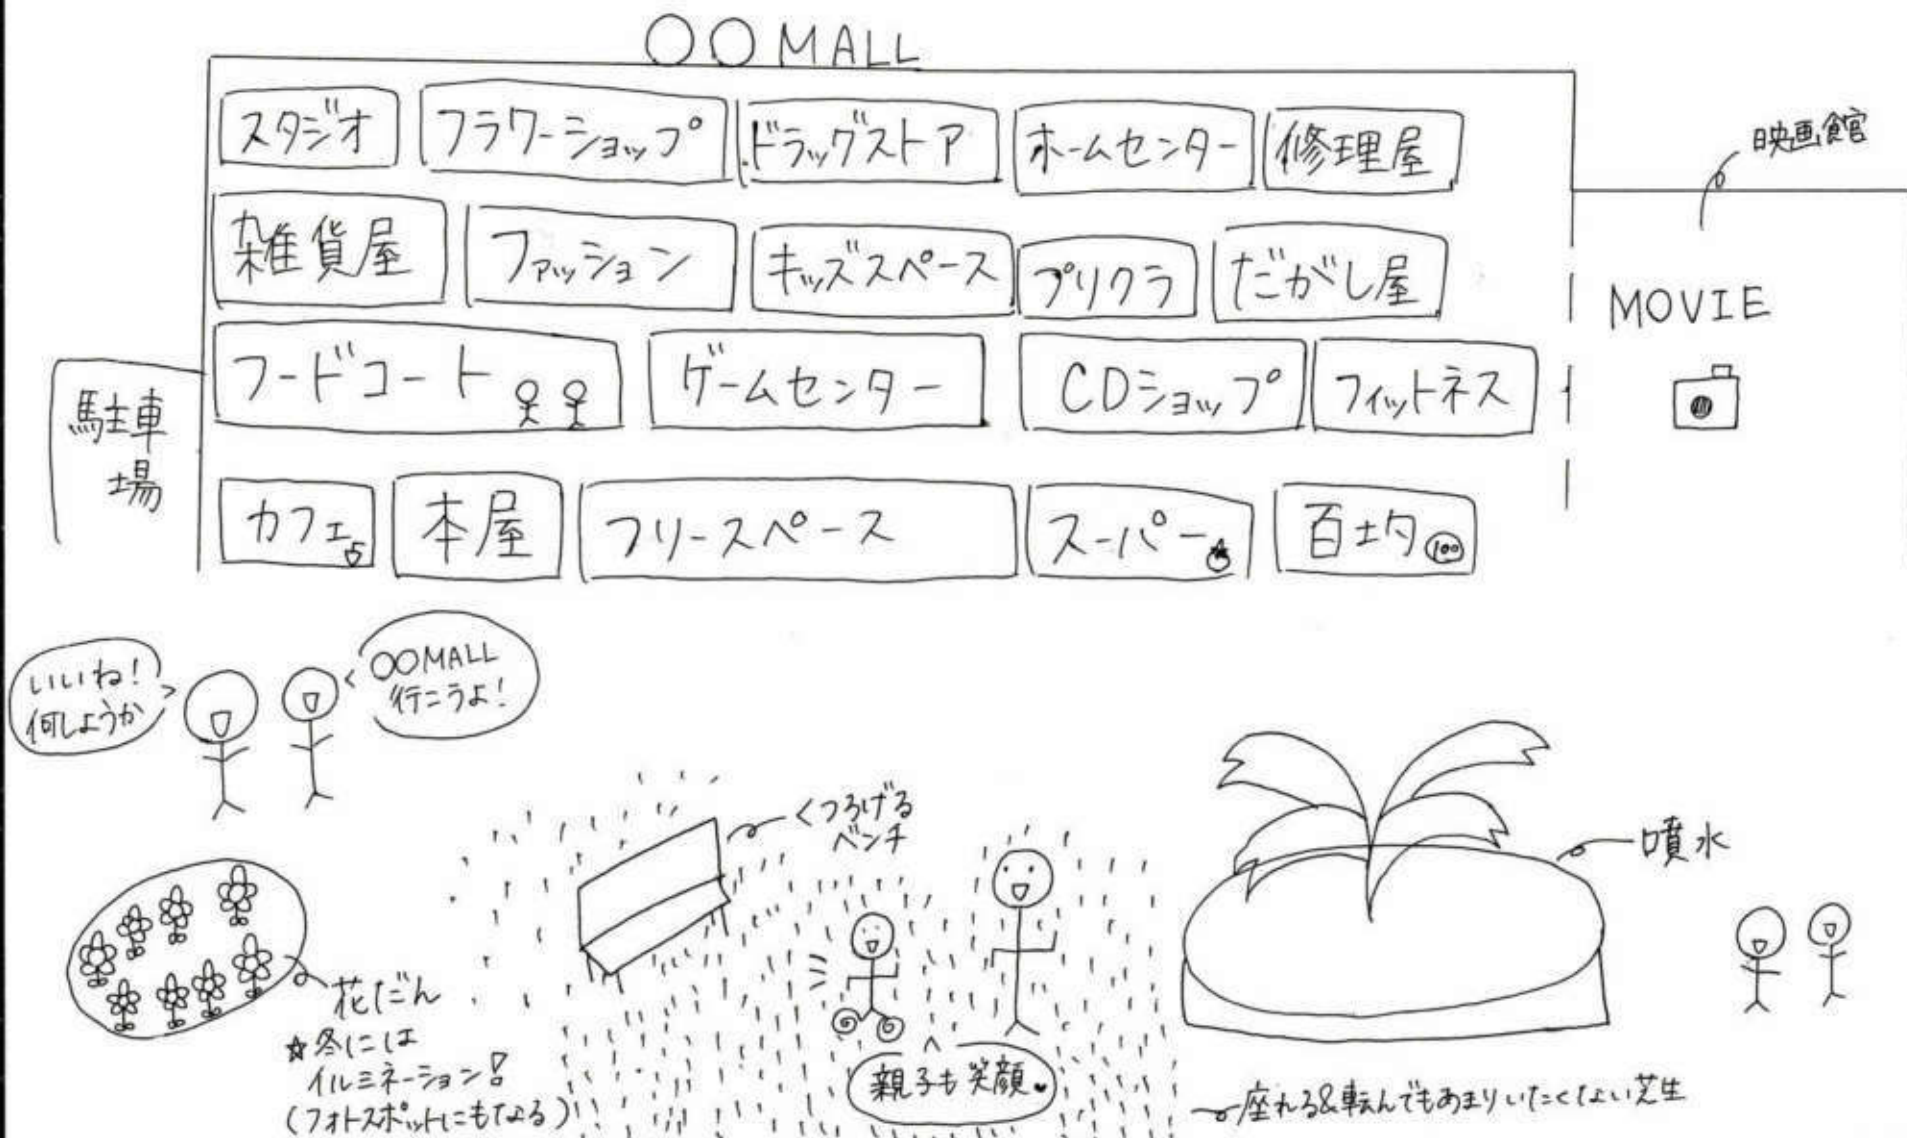 ○○MALL
スタジオ
フラワーショップ
ドラッグストア
ホームセンター
修理屋
映画館
雑貨屋
ファッション
キッズスペース
プリクラ
だがし屋
MOVIE
駐車
場
フードコート
ゲームセンター
CDショップ
フィットネス
カフェ
本屋
フリースペース
スーパー
百均
100
いいね!
何しようか
○○MALL
行こうよ!
くつろげる
ベンチ
噴水
花だん
☆冬には
イルミネーション!
(フォトスポットにもなる)
親子も笑顔♥
座れる&転んでもあまりいたくない芝生